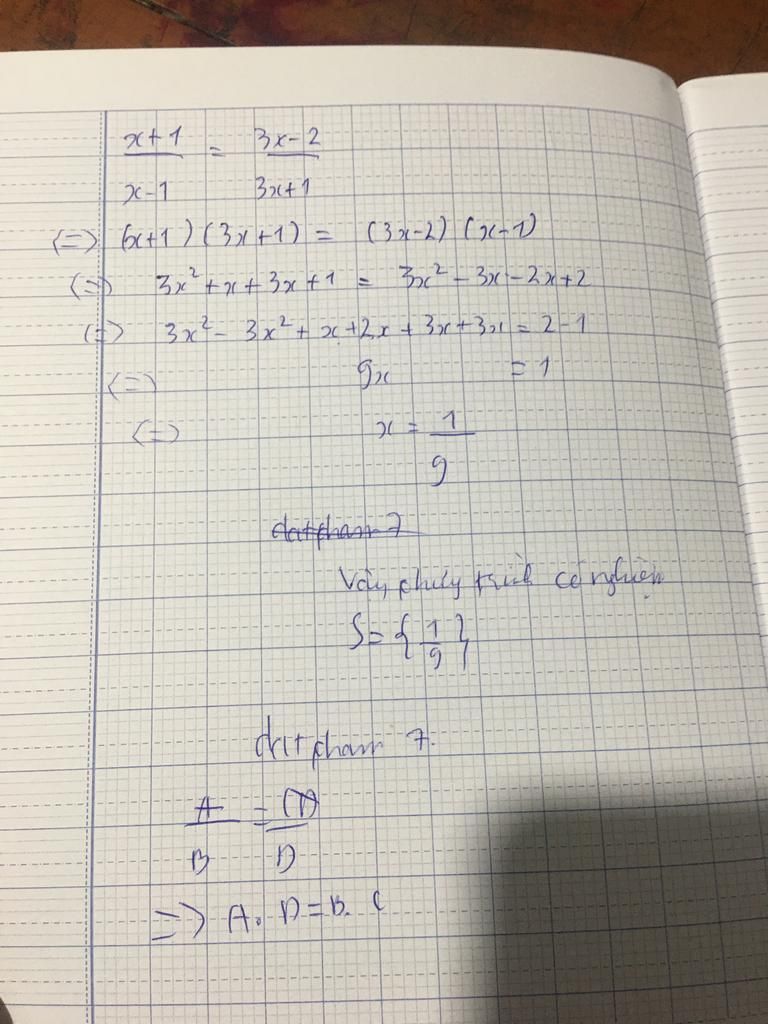 x+1 = 3x-2
x-1 3x+1
(=) (x+1)(3x+1) = (3x-2)(x-1)
(=) 3x²+x+3x+1 = 3x²-3x-2x+2
(=) 3x²-3x²+x+2x+3x+3x=2-1
(=) 9x =1
(=) x = 1
9
datpham 7
Vậy phương trình có nghiệm
S={1/9}
datpham 7.
A = C
B D
=> A. D=B. C